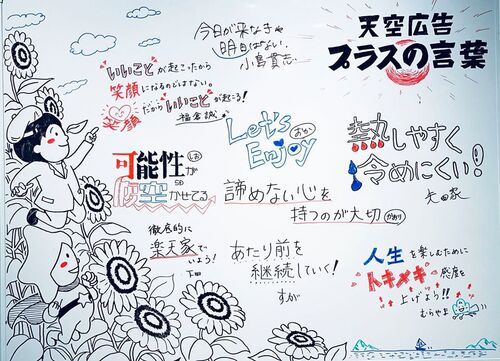 天空広告
プラスの言葉
今日が来なきゃ
明日はない。
小島貴志
いいことが起こったから
笑顔になるのではない。
笑顔だからいいことが起こる!
福倉誠
Let's
Enjoy
おか
熱しやすく
冷めにくい!
大田家
可能性が
しお
防空
かせてる
諦めない心を
持つのが大切
かおり
徹底的に
楽天家で
いよう!
下田
あたり前を
継続していく!
すが
人生を楽しむために
トキメキ感度を
上げよう!!
むらやま